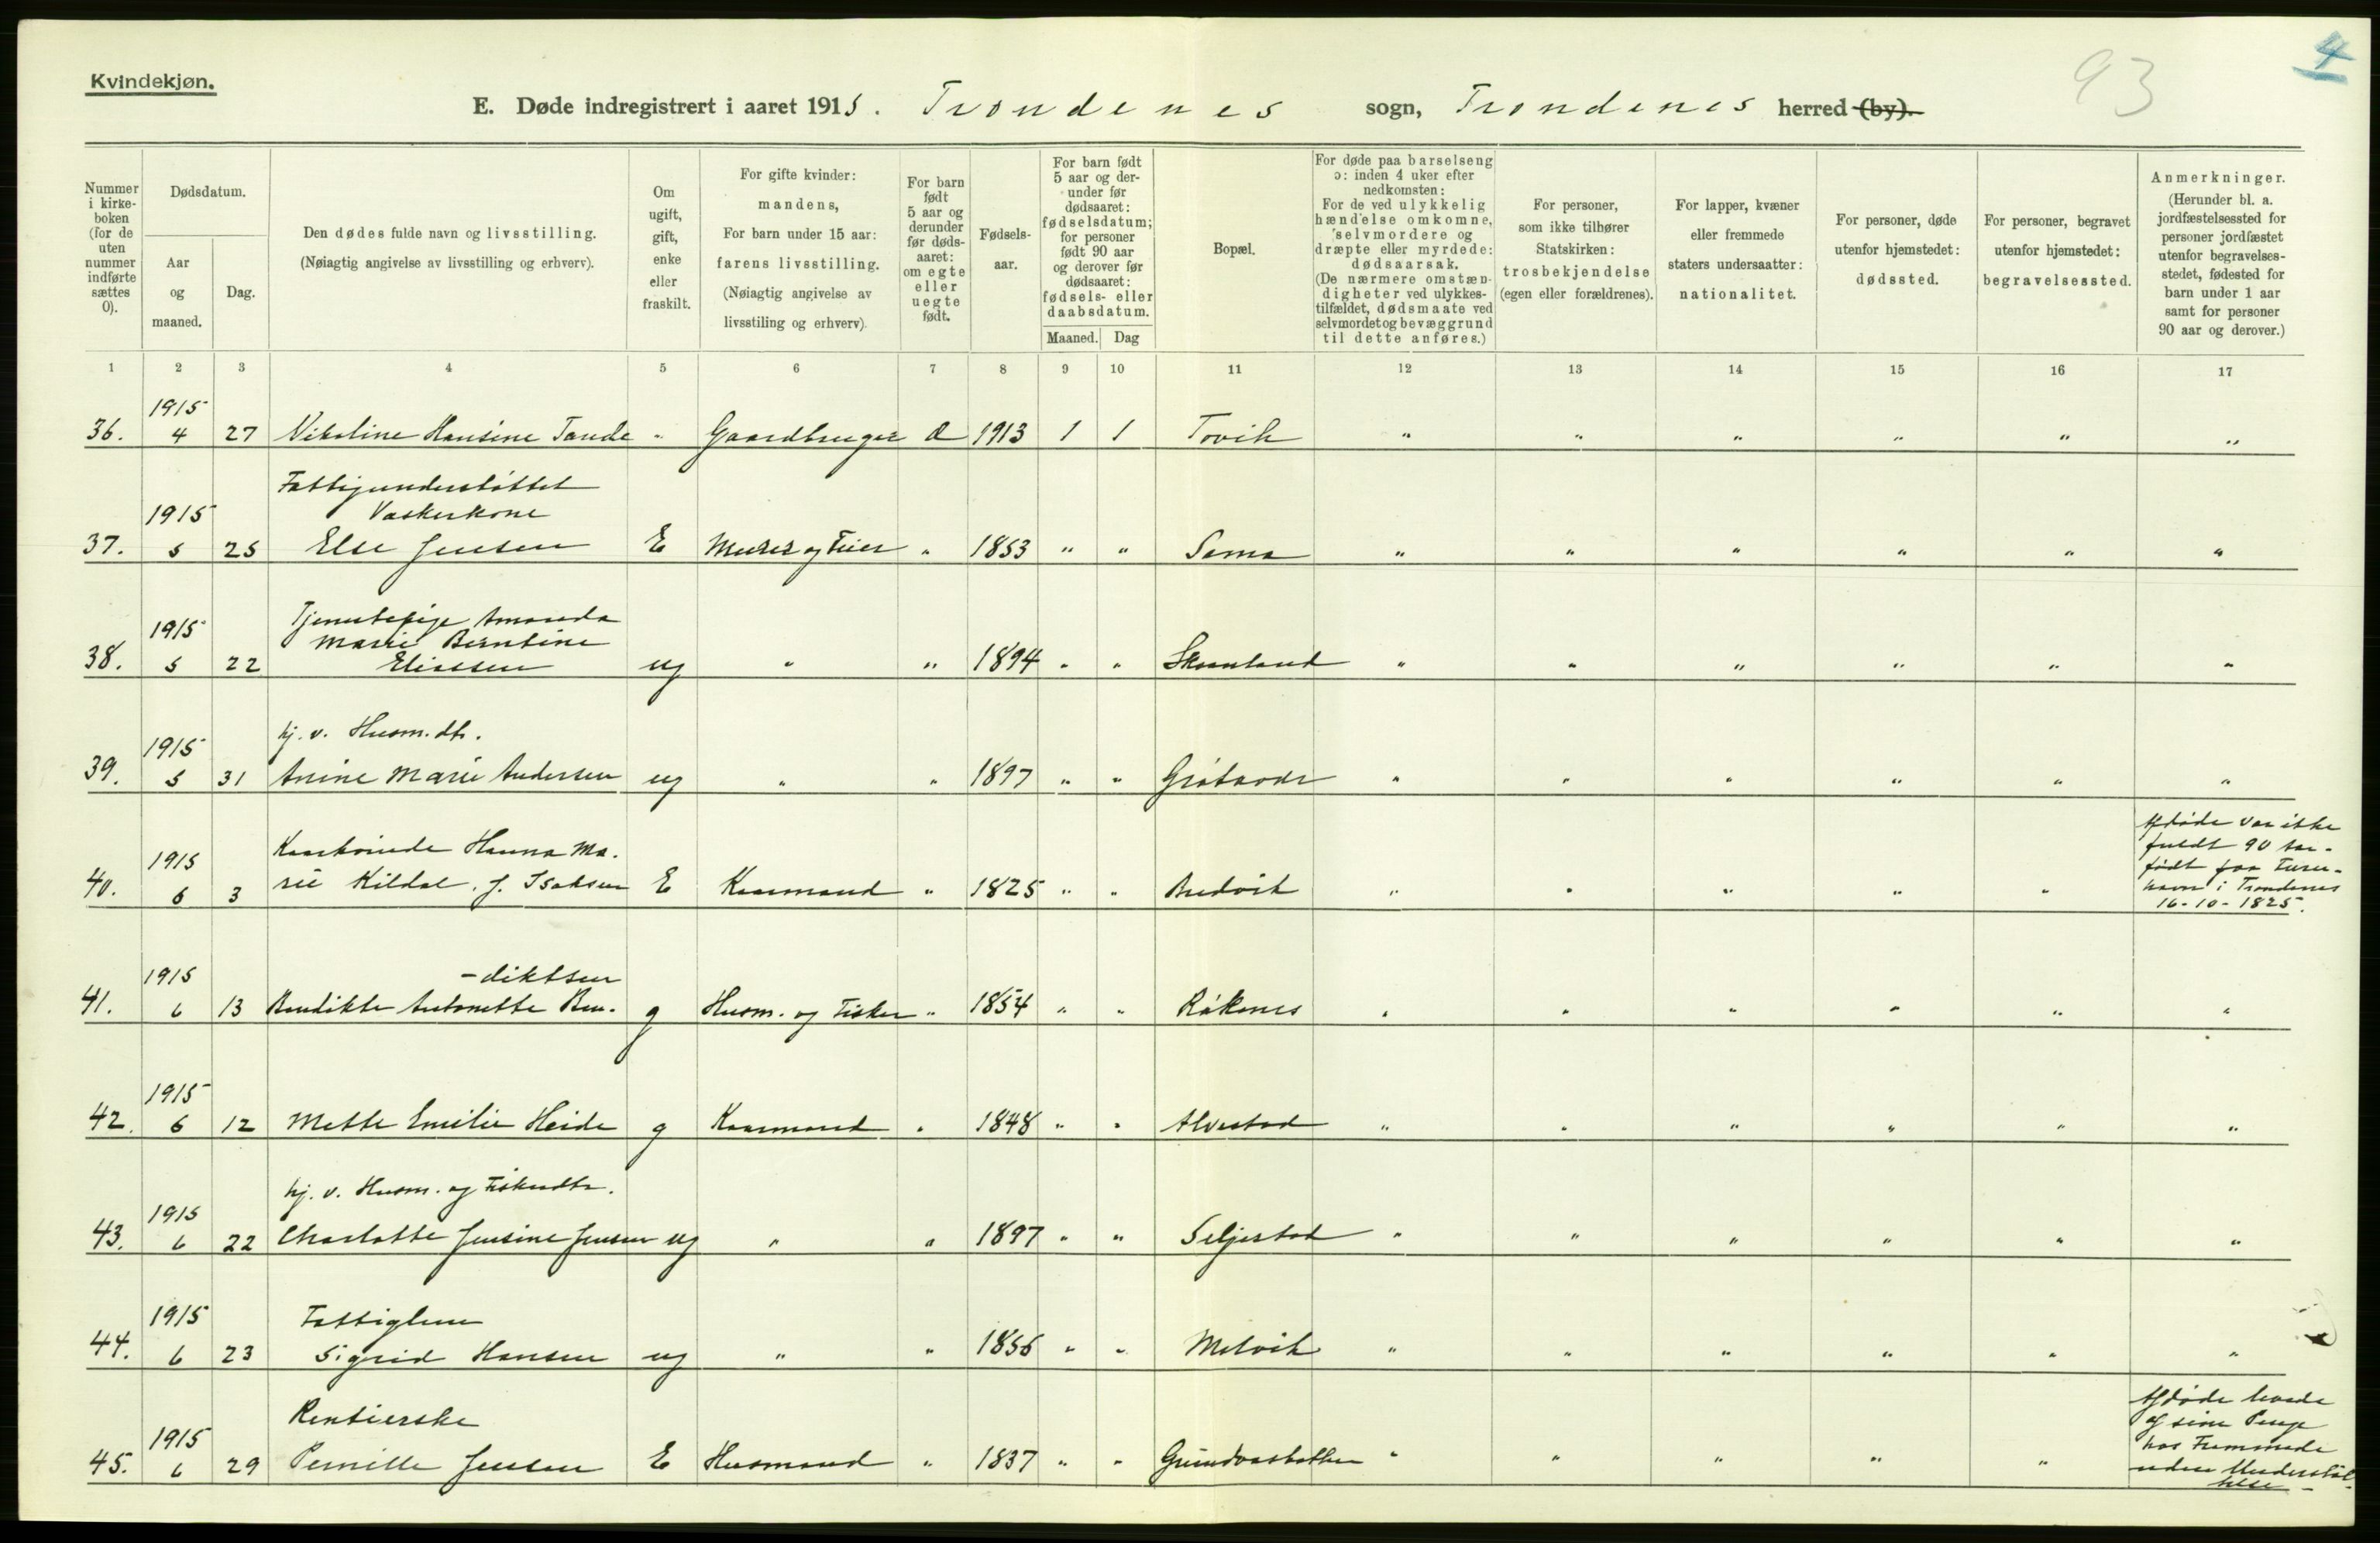 Kvindekjøn.
E. Døde indregistrert i aaret 1915. Trondenes sogn, Trondenes herred (by).
93
4
Nummer i kirkeboken (for de uten nummer indførte sættes 0).
Dødsdatum.
Aar og maaned.
Dag.
Den dødes fulde navn og livsstilling.
(Nøiagtig angivelse av livsstilling og erhverv).
Om ugift, gift, enke eller fraskilt.
For gifte kvinder: mandens,
For barn under 15 aar: farens livsstilling.
(Nøiagtig angivelse av livsstiling og erhverv).
For barn født 5 aar og derunder før dødsaaret: om egte eller uegte født.
Fødselsaar.
For barn født 5 aar og derunder før dødsaaret: fødselsdatum; for personer født 90 aar og derover før dødsaaret: fødsels- eller daabsdatum.
Maaned. Dag
Bopæl.
For døde paa barselseng ɔ: inden 4 uker efter nedkomsten:
For de ved ulykkelig hændelse omkomne, selvmordere og dræpte eller myrdede: dødsaarsak.
(De nærmere omstændigheter ved ulykkestilfældet, dødsmaate ved selvmordet og bevæggrund til dette anføres.)
For personer, som ikke tilhører Statskirken: trosbekjendelse (egen eller forældrenes).
For lapper, kvæner eller fremmede staters undersaatter: nationalitet.
For personer, døde utenfor hjemstedet: dødssted.
For personer, begravet utenfor hjemstedet: begravelsessted.
Anmerkninger.
(Herunder bl. a. jordfæstelsessted for personer jordfæstet utenfor begravelsesstedet, fødested for barn under 1 aar samt for personer 90 aar og derover.)
1 2 3 4 5 6 7 8 9 10 11 12 13 14 15 16 17
1915
36. 4 27 Nikoline Hansine Tande " Gaardbruger 1913 1 1 Tovik " " " " " "
Fattigunderstøttet
1915 Vaskerkone
37. 5 25 Else Jensen E Murer og Feier " 1853 " " Sama " " " " " "
Tjenestepige Amanda
1915 Marie Berntine
38. 5 22 Eliassen ug " " 1894 " " Skaanland " " " " " "
hj. v. Husm. dtr.
1915
39. 5 31 Anine Marie Andersen ug " " 1897 " " Grøtavær " " " " " "
1915 Kaarkvinde Hanna Ma-
40. 6 3 rie Kildal, f. Isaksen E Kaarmand " 1825 " " Bredvik " " " " "
Afdøde var ikke
fuldt 90 aar.
født paa
havn i Trondenes
16-10-1825.
1915 -diktsen
41. 6 13 Bendikte Antonette Ben- g Husm. og Fisker " 1854 " " Røkenes " " " " " "
1915
42. 6 12 Mette Emilie Heide g Kaarmand " 1848 " " Alvestad " " " " " "
hj. v. Husm. og Fiskerdtr.
1915
43. 6 22 Charlotte Jensine Jensen ug " " 1897 " " Seljestad " " " " " "
1915 Fattiglem
44. 6 23 Sigrid Hansen ug " " 1856 " " Melvik " " " " " "
Rentierske
1915
45. 6 29 Pernille Jensen E Husmand " 1837 " " " " " " "
Afdøde levede
af sine Penge
hos Fremmede
uden Understøt-
telse